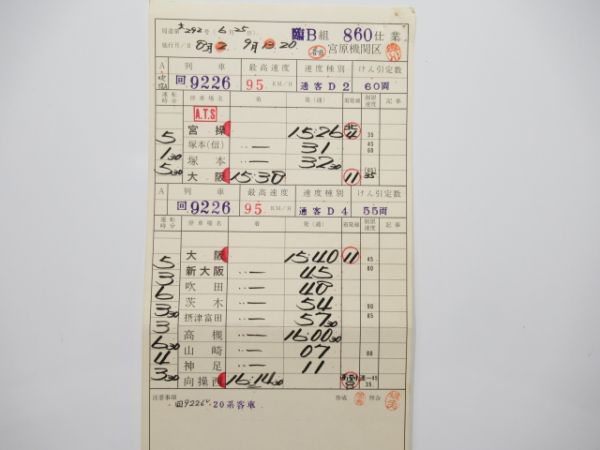 臨B組 860仕業
施行月/日 8月2 9月13.20 宮原機関区
A 列車 最高速度 速度種別 けん引定数
回9226 95 KM/H 通客D2 60両
運転時分 停車場名 着 発(通) 着発線 制限速度 記事
A.T.S
5 宮操 15:26 35
1 30 塚本(信) ‥ー 31 45 60
5 30 塚本 ‥ー 32 30
大阪 15:38 11 35
A 列車 最高速度 速度種別 けん引定数
回9226 95 KM/H 通客D4 55両
運転時分 停車場名 着 発(通) 制限速度 記事
5 大阪 15:40 11 45
3 新大阪 ‥ー 45 80
6 吹田 ‥ー 48
3 30 茨木 ‥ー 54 90
3 摂津富田 ‥ー 57 30 85
6 30 高槻 ‥ー 16:00 30
4 山崎 ‥ー 07 88
3 30 神足 ‥ー 11
向操西 16:14 30 45 35
注意事項 作成 照合
回9226 20系客車